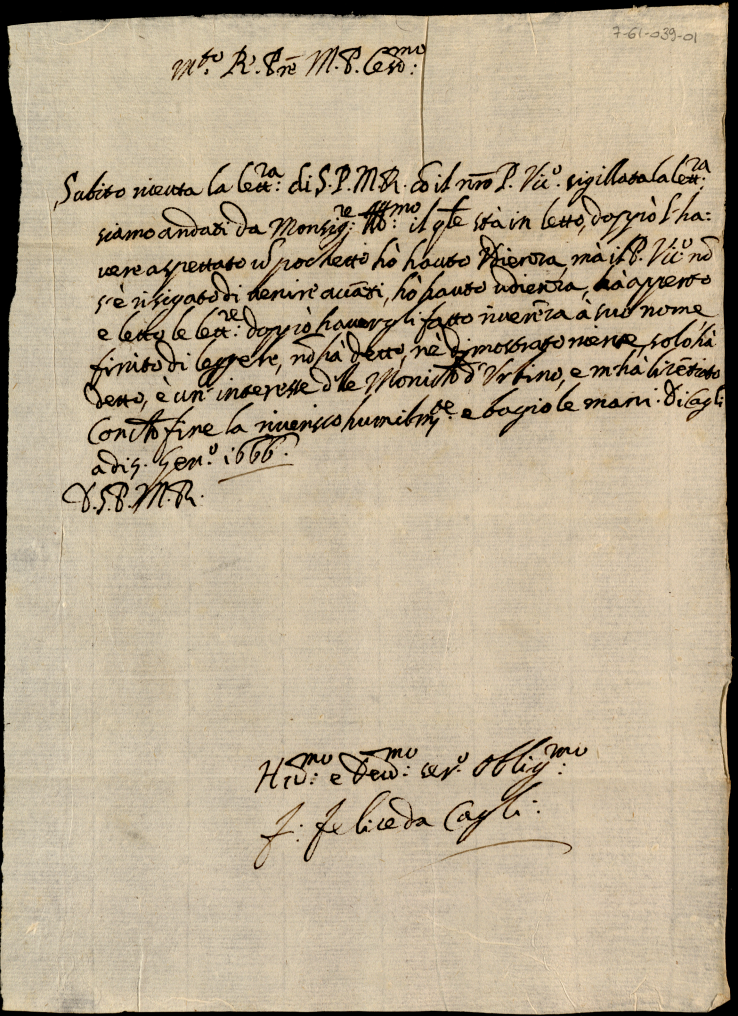 7-61-039-01
M.to R. Pre M. P. Col.mo:
Subito riceuta la lett.ra: di S. P. M. R. cō il nr̄o P. Vic.o sigillata la lett.ra:
siamo andati da Monsig.re: Ill.mo: il q̄le stà in letto, doppiò l'ha:
uere aspettato ū pochetto hò hauto Vdienza, mà il P. Vic.o nō
s'è risigato di uenire auāti, hò hauto udienza, hà apperto
e letto le lett.re: doppiò hauergli fatto riuerenza à suo nome
finito di leggere, nō hà detto, nè dimostrato niente, solo hà
detto, è un' interesse d'le Monic.e d'Vrbino, e m'hà licētiato
Con q̄sto fine la riuerisco humilm.te: e bagio le mani. Di Cagli
a di 5. Gen.o 1666.
D. S. P. M. R.
H.mo: e Deu.mo: ser.o: Oblig.mo:
F: Felice da Cagli: